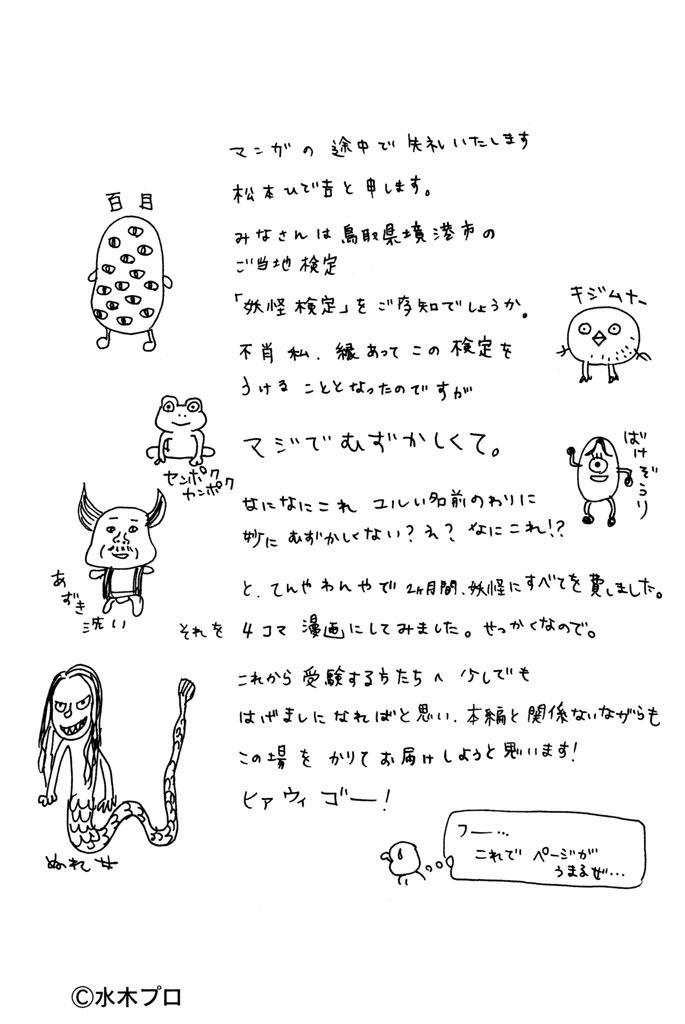 マンガの途中で失礼いたします
松本ひで吉と申します。
みなさんは鳥取県境港市の
ご当地検定
「妖怪検定」をご存知でしょうか。
不肖私、縁あってこの検定を
うけることとなったのですが
マジでむずかしくて。
なになにこれ ユルい名前のわりに
妙にむずかしくない?え?なにこれ!?
と、てんやわんやで2ヶ月間、妖怪にすべてを費しました。
それを4コマ漫画にしてみました。せっかくなので。
これから受験する方たちへ少しでも
はげましになればと思い、本編と関係ないながらも
この場をかりてお届けしようと思います!
ヒァウィゴー!
百目
キジムナー
センポク
カンポク
ばけぞうり
あずき
洗い
ぬれ女
フー…
これでページが
うまるぜ…
©水木プロ